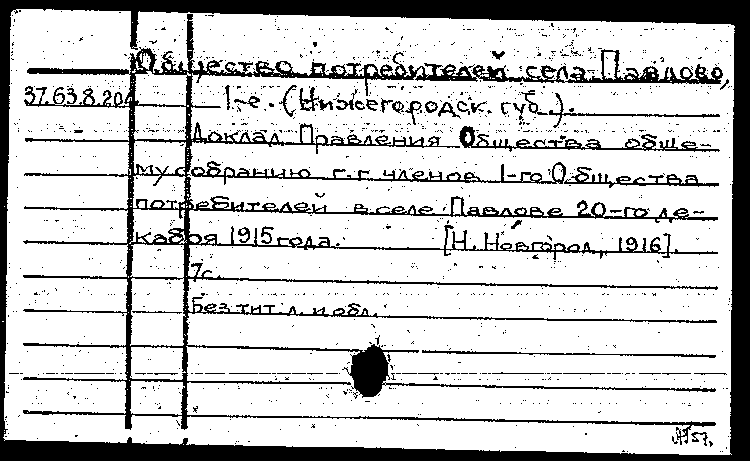 Общество потребителей села Павлово,
37.63.8.204 1-е. (Нижегородск. губ.).
Доклад Правления Общества обще-
му собранию г.г. членов 1-го Общества
потребителей в селе Павлове 20-го де-
кабря 1915 года. [Н. Новгород, 1916].
7с.
Без тит. л. и обл.